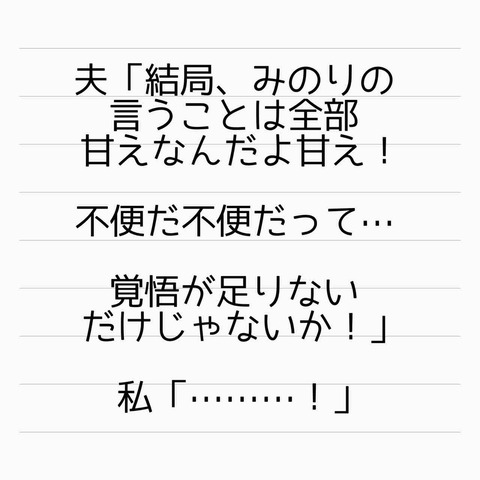 夫「結局、みのりの
言うことは全部
甘えなんだよ甘え！
不便だ不便だって…
覚悟が足りない
だけじゃないか！」
私「………！」